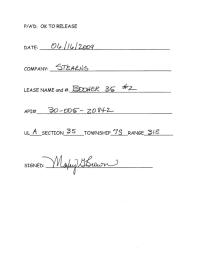 P/A'D: OK TO RELEASE
DATE: 06/16/2009
COMPANY: STEARNS
LEASE NAME and #: BOOHER 35 #2
API# 30-005-20842
UL A SECTION 35 TOWNSHIP 7S RANGE 31E
SIGNED: